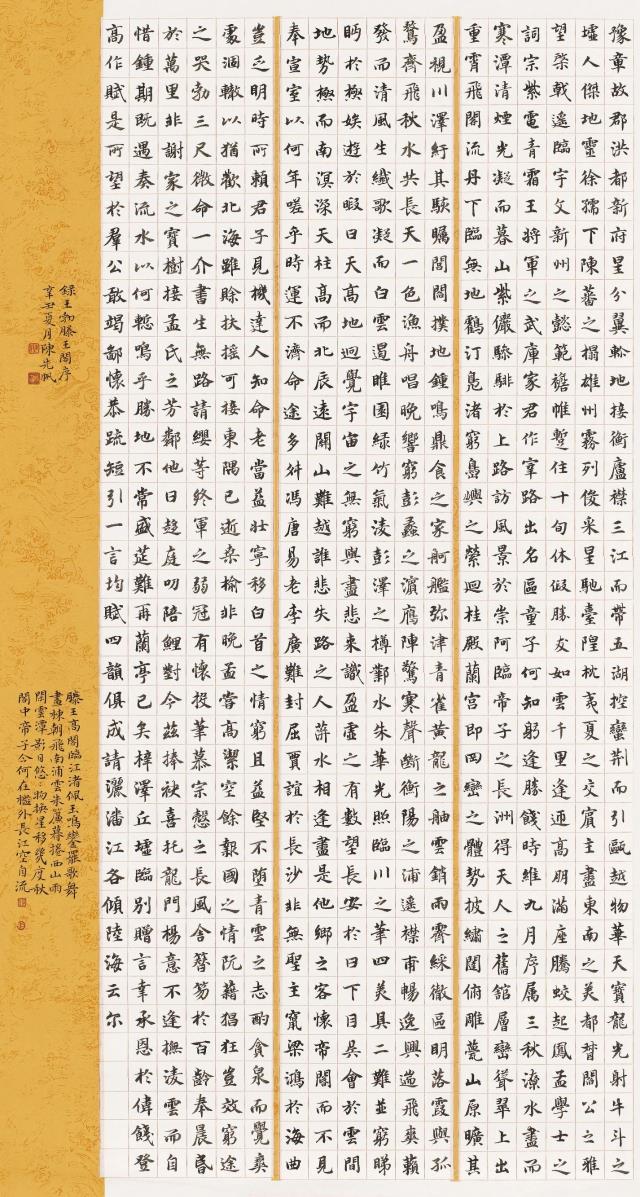 豫章故郡洪都新府星分翼軫地接衡廬襟三江而帶五湖控蠻荊而引甌越物華天寶龍光射牛斗之
墟人傑地靈徐孺下陳蕃之榻雄州霧列俊采星馳臺隍枕夷夏之交賓主盡東南之美都督閻公之雅
望棨戟遙臨宇文新州之懿範襜帷蹔住十旬休假勝友如雲千里逢迎高朋滿座騰蛟起鳳孟學士之
詞宗紫電青霜王將軍之武庫家君作宰路出名區童子何知躬逢勝餞時維九月序属三秋潦水盡而
寒潭清煙光凝而暮山紫儼驂騑於上路訪風景於崇阿臨帝子之長洲得天人之舊舘層巒聳翠上出
重霄飛閣流丹下臨無地鶴汀鳧渚窮島嶼之縈迴桂殿蘭宮即岡巒之體勢披繡闥俯雕甍山原曠其
盈視川澤紆其駭矚閭閻撲地鍾鳴鼎食之家舸艦弥津青雀黃龍之舳雲銷雨霽綵徹區明落霞與孤
鶩齊飛秋水共長天一色漁舟唱晚響窮彭蠡之濱鴈陣驚寒聲斷衡陽之浦遙襟甫暢逸興遄飛爽籟
發而清風生纖歌凝而白雲遏睢園緑竹氣凌彭澤之樽鄴水朱華光照臨川之筆四美具二難並窮睇
眄於極娛遊於暇日天高地迥覺宇宙之無窮興盡悲来識盈虛之有數望長安於日下目吳會於雲間
地勢極而南溟深天柱高而北辰遠關山難越誰悲失路之人萍水相逢盡是他鄉之客懷帝閽而不見
奉宣室以何年嗟乎時運不濟命途多舛馮唐易老李廣難封屈賈誼於長沙非無聖主竄梁鴻於海曲
豈乏明時所賴君子見機達人知命老當益壯寧移白首之情窮且益堅不墮青雲之志酌貪泉而覺爽
處涸轍以猶歡北海雖賒扶搖可接東隅已逝桑榆非晚孟嘗高潔空餘報國之情阮藉猖狂豈效窮途
之哭勃三尺微命一介書生無路請纓等終軍之弱冠有懷投筆慕宗慤之長風舍簪笏於百齡奉晨昏
於萬里非謝家之寶樹接孟氏之芳鄰他日趍庭叨陪鯉對今茲捧袂喜托龍門楊意不逢撫凌雲而自
惜鍾期既遇奏流水以何慙嗚乎勝地不常盛筵難再蘭亭已矣梓澤丘墟臨別贈言幸承恩於偉餞登
高作賦是所望於羣公敢竭鄙懷恭疏短引一言均賦四韻俱成請灑潘江各傾陸海云尔
滕王高閣臨江渚佩玉鳴鑾罷歌舞
畫棟朝飛南浦雲朱簾暮捲西山雨
閒雲潭影日悠〻物換星移幾度秋
閣中帝子今何在檻外長江空自流
錄王勃滕王閣序
辛丑夏月陳先帆